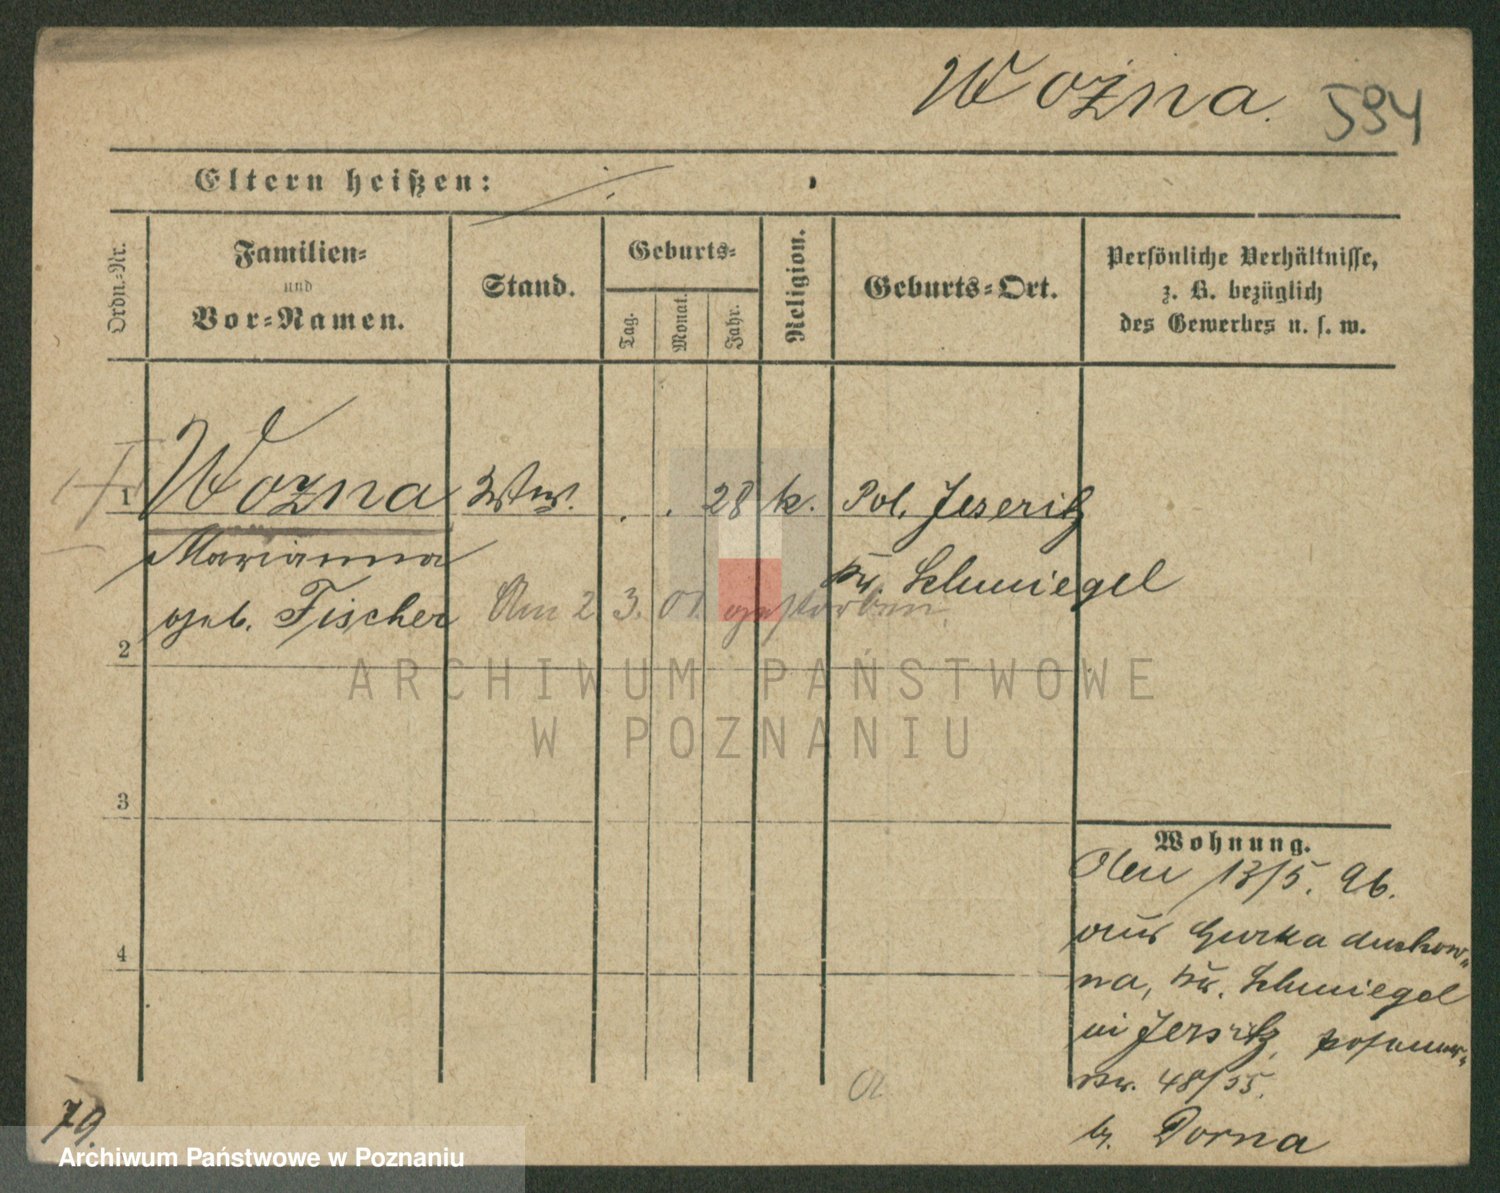 Wożna. 594
Eltern heißen:
Ordn.-Nr.
Familien-
und
Vor-Namen.
Stand.
Geburts-
Tag.
Monat.
Jahr.
Religion.
Geburts-Ort.
Persönliche Verhältnisse,
z. B. bezüglich
des Gewerbes u. s. w.
1 Wozna Wtw. . . 28 k. Pol. Jeseritz
Marianna Kr. Schmiegel
geb. Fischer Am 2. 3. 01. gestorben.
2
ARCHIWUM PAŃSTWOWE
W POZNANIU
3
Wohnung.
Den 13/5. 96.
aus Gurka duchow-
4
na, Kr. Schmiegel
in Jersitz, posener-
str. 48/55.
b. Dorna
79.
Archiwum Państwowe w Poznaniu